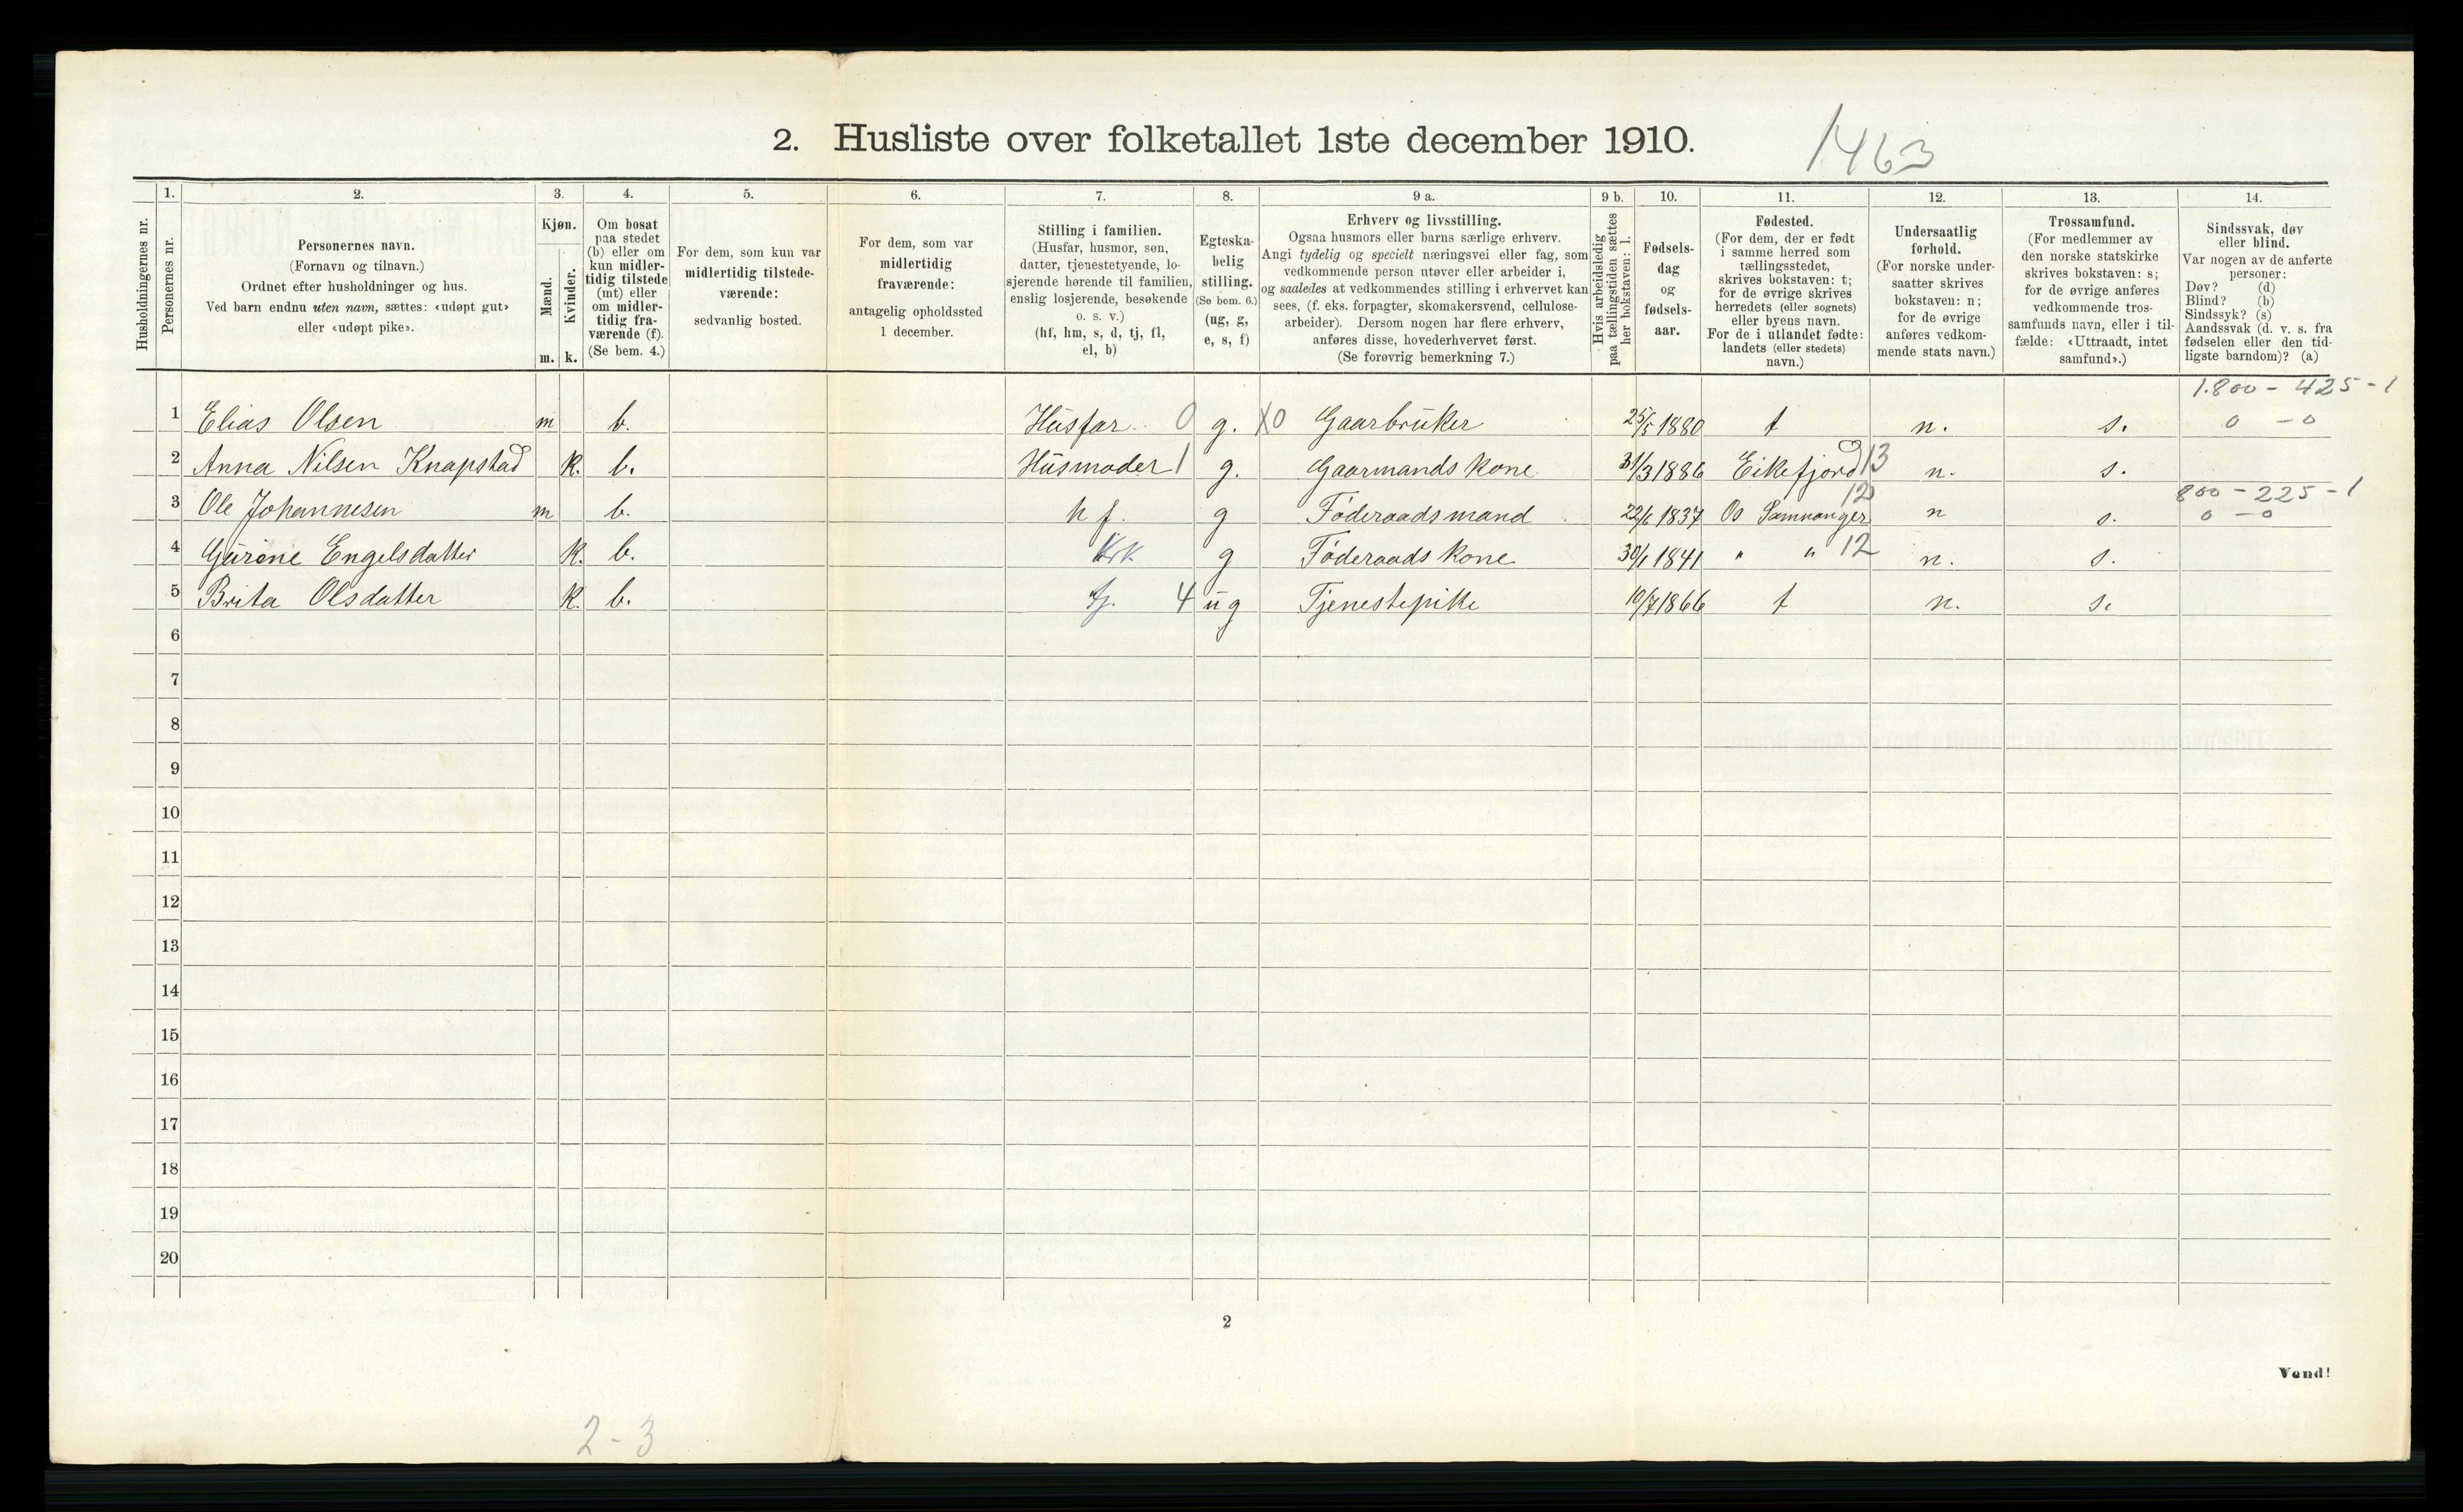 2. Husliste over folketallet 1ste december 1910. 1463
Husholdningernes nr.
1. Personernes nr.
2. Personernes navn.
(Fornavn og tilnavn.)
Ordnet efter husholdninger og hus.
Ved barn endnu uten navn, sættes: «udøpt gut»
eller «udøpt pike».
3. Kjøn.
Mænd. Kvinder.
m. k.
4. Om bosat
paa stedet
(b) eller om
kun midler-
tidig tilstede
(mt) eller
om midler-
tidig fra-
værende (f).
(Se bem. 4.)
5. For dem, som kun var
midlertidig tilstede-
værende:
sedvanlig bosted.
6. For dem, som var
midlertidig
fraværende:
antagelig opholdssted
1 december.
7. Stilling i familien.
(Husfar, husmor, søn,
datter, tjenestetyende, lo-
sjerende hørende til familien,
enslig losjerende, besøkende
o. s. v.)
(hf, hm, s, d, tj, fl,
el, b)
8. Egteska-
belig
stilling.
(Se bem. 6.)
(ug, g,
e, s, f)
9 a. Erhverv og livsstilling.
Ogsaa husmors eller barns særlige erhverv.
Angi tydelig og specielt næringsvei eller fag, som
vedkommende person utøver eller arbeider i,
og saaledes at vedkommendes stilling i erhvervet kan
sees, (f. eks. forpagter, skomakersvend, cellulose-
arbeider). Dersom nogen har flere erhverv,
anføres disse, hovederhvervet først.
(Se forøvrig bemerkning 7.)
9 b. Hvis arbeidsledig
paa tællingstiden sættes
her bokstaven: l.
10. Fødsels-
dag
og
fødsels-
aar.
11. Fødested.
(For dem, der er født
i samme herred som
tællingsstedet,
skrives bokstaven: t;
for de øvrige skrives
herredets (eller sognets)
eller byens navn.
For de i utlandet fødte:
landets (eller stedets)
navn.)
12. Undersaatlig
forhold.
(For norske under-
saatter skrives
bokstaven: n;
for de øvrige
anføres vedkom-
mende stats navn.)
13. Trossamfund.
(For medlemmer av
den norske statskirke
skrives bokstaven: s;
for de øvrige anføres
vedkommende tros-
samfunds navn, eller i til-
fælde: «Uttraadt, intet
samfund».)
14. Sindssvak, døv
eller blind.
Var nogen av de anførte
personer:
Døv? (d)
Blind? (b)
Sindssyk? (s)
Aandssvak (d. v. s. fra
fødselen eller den tid-
ligste barndom)? (a)
1.800 - 425 - 1
1 Elias Olsen m b. Husfar 0 g. X0 Gaarbruker 25/5 1880 t n. s. 0 - 0
2 Anna Nilsen Knapstad K. b. Husmoder 1 g. Gaarmands kone 31/3 1886 Eikefjord 13 n. s.
12 800 - 225 - 1
3 Ole Johannesen m b. h f. g Føderaadsmand 22/6 1837 Os Samnanger n s. 0 - 0
4 Gurine Engelsdatter K. b. g Føderaads kone 30/1 1841 " " 12 n. s.
5 Brita Olsdatter K. b. tj. 4 ug Tjenestepike 10/7 1866 t n. s.
6
7
8
9
10
11
12
13
14
15
16
17
18
19
20
2
Vend!
2 - 3